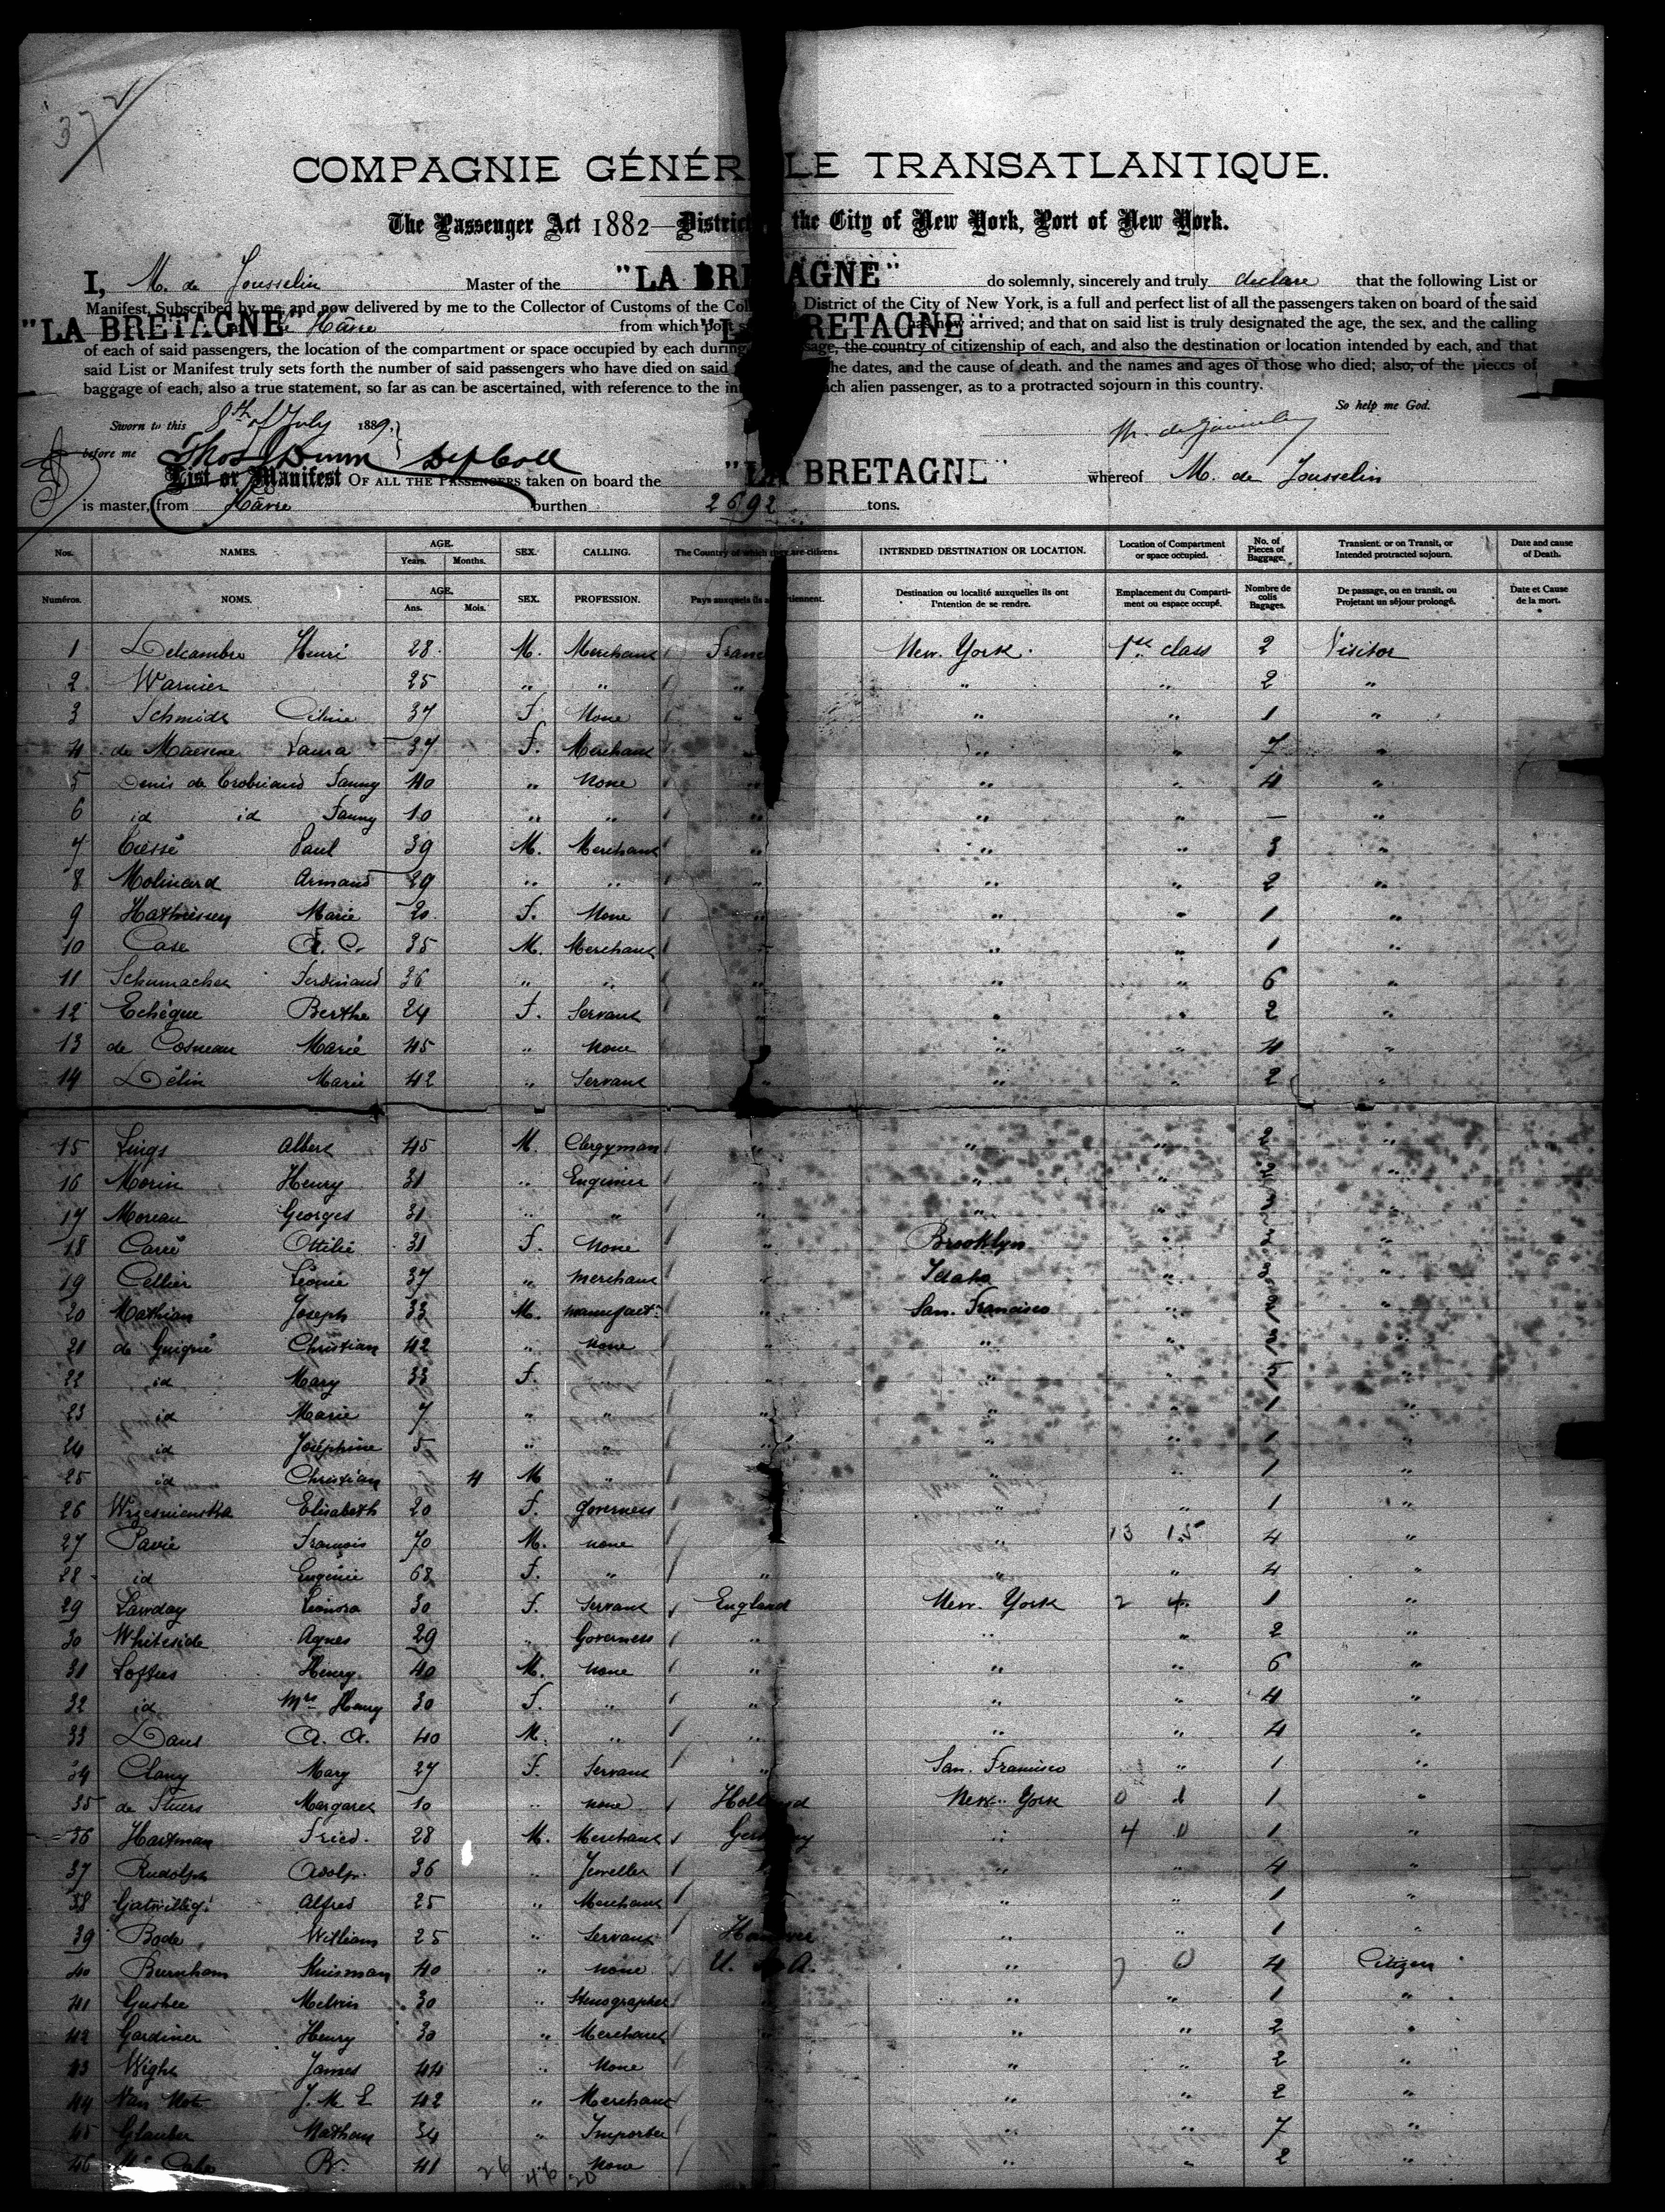 COMPAGNIE GÉNÉR LE TRANSATLANTIQUE.
The Passenger Act 1882—District the City of New York, Port of New York.
I, M. de Jousselin Master of the "LA BRETAGNE" do solemnly, sincerely and truly declare that the following List or
Manifest, Subscribed by me, and now delivered by me to the Collector of Customs of the Col District of the City of New York, is a full and perfect list of all the passengers taken on board of the said
"LA BRETAGNE" Hâvre from which port "LA BRETAGNE" has now arrived; and that on said list is truly designated the age, the sex, and the calling
of each of said passengers, the location of the compartment or space occupied by each during sage, the country of citizenship of each, and also the destination or location intended by each, and that
said List or Manifest truly sets forth the number of said passengers who have died on said he dates, and the cause of death. and the names and ages of those who died; also, of the pieces of
baggage of each, also a true statement, so far as can be ascertained, with reference to the in ch alien passenger, as to a protracted sojourn in this country.
So help me God.
Sworn to this 8th of July 1889.
before me Thos Dunn Dep Coll
List or Manifest OF ALL THE PASSENGERS taken on board the "LA BRETAGNE" whereof M. de Jousselin
is master, from Hâvre burthen 2692 tons.
Nos. NAMES. AGE. Years. Months. SEX. CALLING. The Country of which they are citizens. INTENDED DESTINATION OR LOCATION. Location of Compartment or space occupied. No. of Pieces of Baggage. Transient, or on Transit, or Intended protracted sojourn. Date and cause of Death.
Numéros. NOMS. AGE. Ans. Mois. SEX. PROFESSION. Pays auxquels ils a tiennent. Destination ou localité auxquelles ils ont l'intention de se rendre. Emplacement du Comparti-ment ou espace occupé. Nombre de colis Bagages. De passage, ou en transit, ou Projetant un séjour prolongé. Date et Cause de la mort.
1 Delcambre Henri 28 M. Merchant Franc New. York. 1re class 2 Visitor
2 Warnier 25 " " " " " 2 "
3 Schmidt Céline 37 F None " " " 1 "
4 de Maesene Laura 37 F. Merchant " " " 7 "
5 Denis de Trobriand Fanny 40 " None " " " 4 "
6 id id Fanny 10 " " " " " — "
7 Cressé Paul 39 M. Merchant " " " 3 "
8 Molinard Armand 29 " " " " " 2 "
9 Marie 20 F. None " " " 1 "
10 Case A. C. 35 M. Merchant " " " 1 "
11 Schumacher Ferdinand 36 " " " " " 6 "
12 Echégue Berthe 24 F. Servant " " " 2 "
13 de Cosneau Marie 45 " None " " " 4 "
14 Délin Marie 42 " Servant " " " 2 "
15 Lings Albert 45 M. Clergyman " " " 2 "
16 Morin Henry 31 " Engineer " " " "
17 Moreau Georges 31 " " " " " "
18 Carré Ottilie 31 F. None " Brooklyn " "
19 Cellier Léonie 37 " Merchant " Idaho " "
20 Mathian Joseph 33 M. manufactr " San. Francisco " "
21 de Guigné Christian 42 " None " " "
22 id Mary 33 F. " " 5 "
23 id Marie 7 " " " " " 1 "
24 id Joséphine 5 " " " " " 1 "
25 id Christian 4 M " " " " 1 "
26 Wrzesnienska Elisabeth 20 F. Governess " " 1 "
27 Pavie François 70 M. None " 13 15 4 "
28 id Eugénie 68 F. " " " " 4 "
29 Lawday Leonora 30 F. Servant England New. York 2 4 1 "
30 Whiteside Agnes 29 " Governess " " " 2 "
31 Loftus Henry 40 M. None " " " 6 "
32 id Mrs Henry 30 F. " " " " 4 "
33 Dant A. A. 40 M. " " " " 4 "
34 Clany Mary 27 F. Servant " San. Francisco " 1 "
35 de Stuers Margaret 10 " none Holland New. York 0 1 1 "
36 Hartman Fried. 28 M. Merchant Germany " 4 0 1 "
37 Rudolph Adolp. 36 " Jeweller " " 4 "
38 Alfred 25 " Merchant " " 1 "
39 Bode William 25 " Servant Hanover " " 1 "
40 Burnham Kuisman 40 " none U. S. A. " 7 0 4 Citizen
41 Gusbee Melvin 30 " Stenographer " " 1 "
42 Gardiner Henry 30 " Merchant " " " 2 "
43 Wight James 44 " None " " " 2 "
44 Van Not J. M L 42 " Merchant " " " 2 "
45 Glauber Nathan 34 " Importer " " " 7 "
46 Mc Cabe B. 41 None " " " 2 "
26 46 20